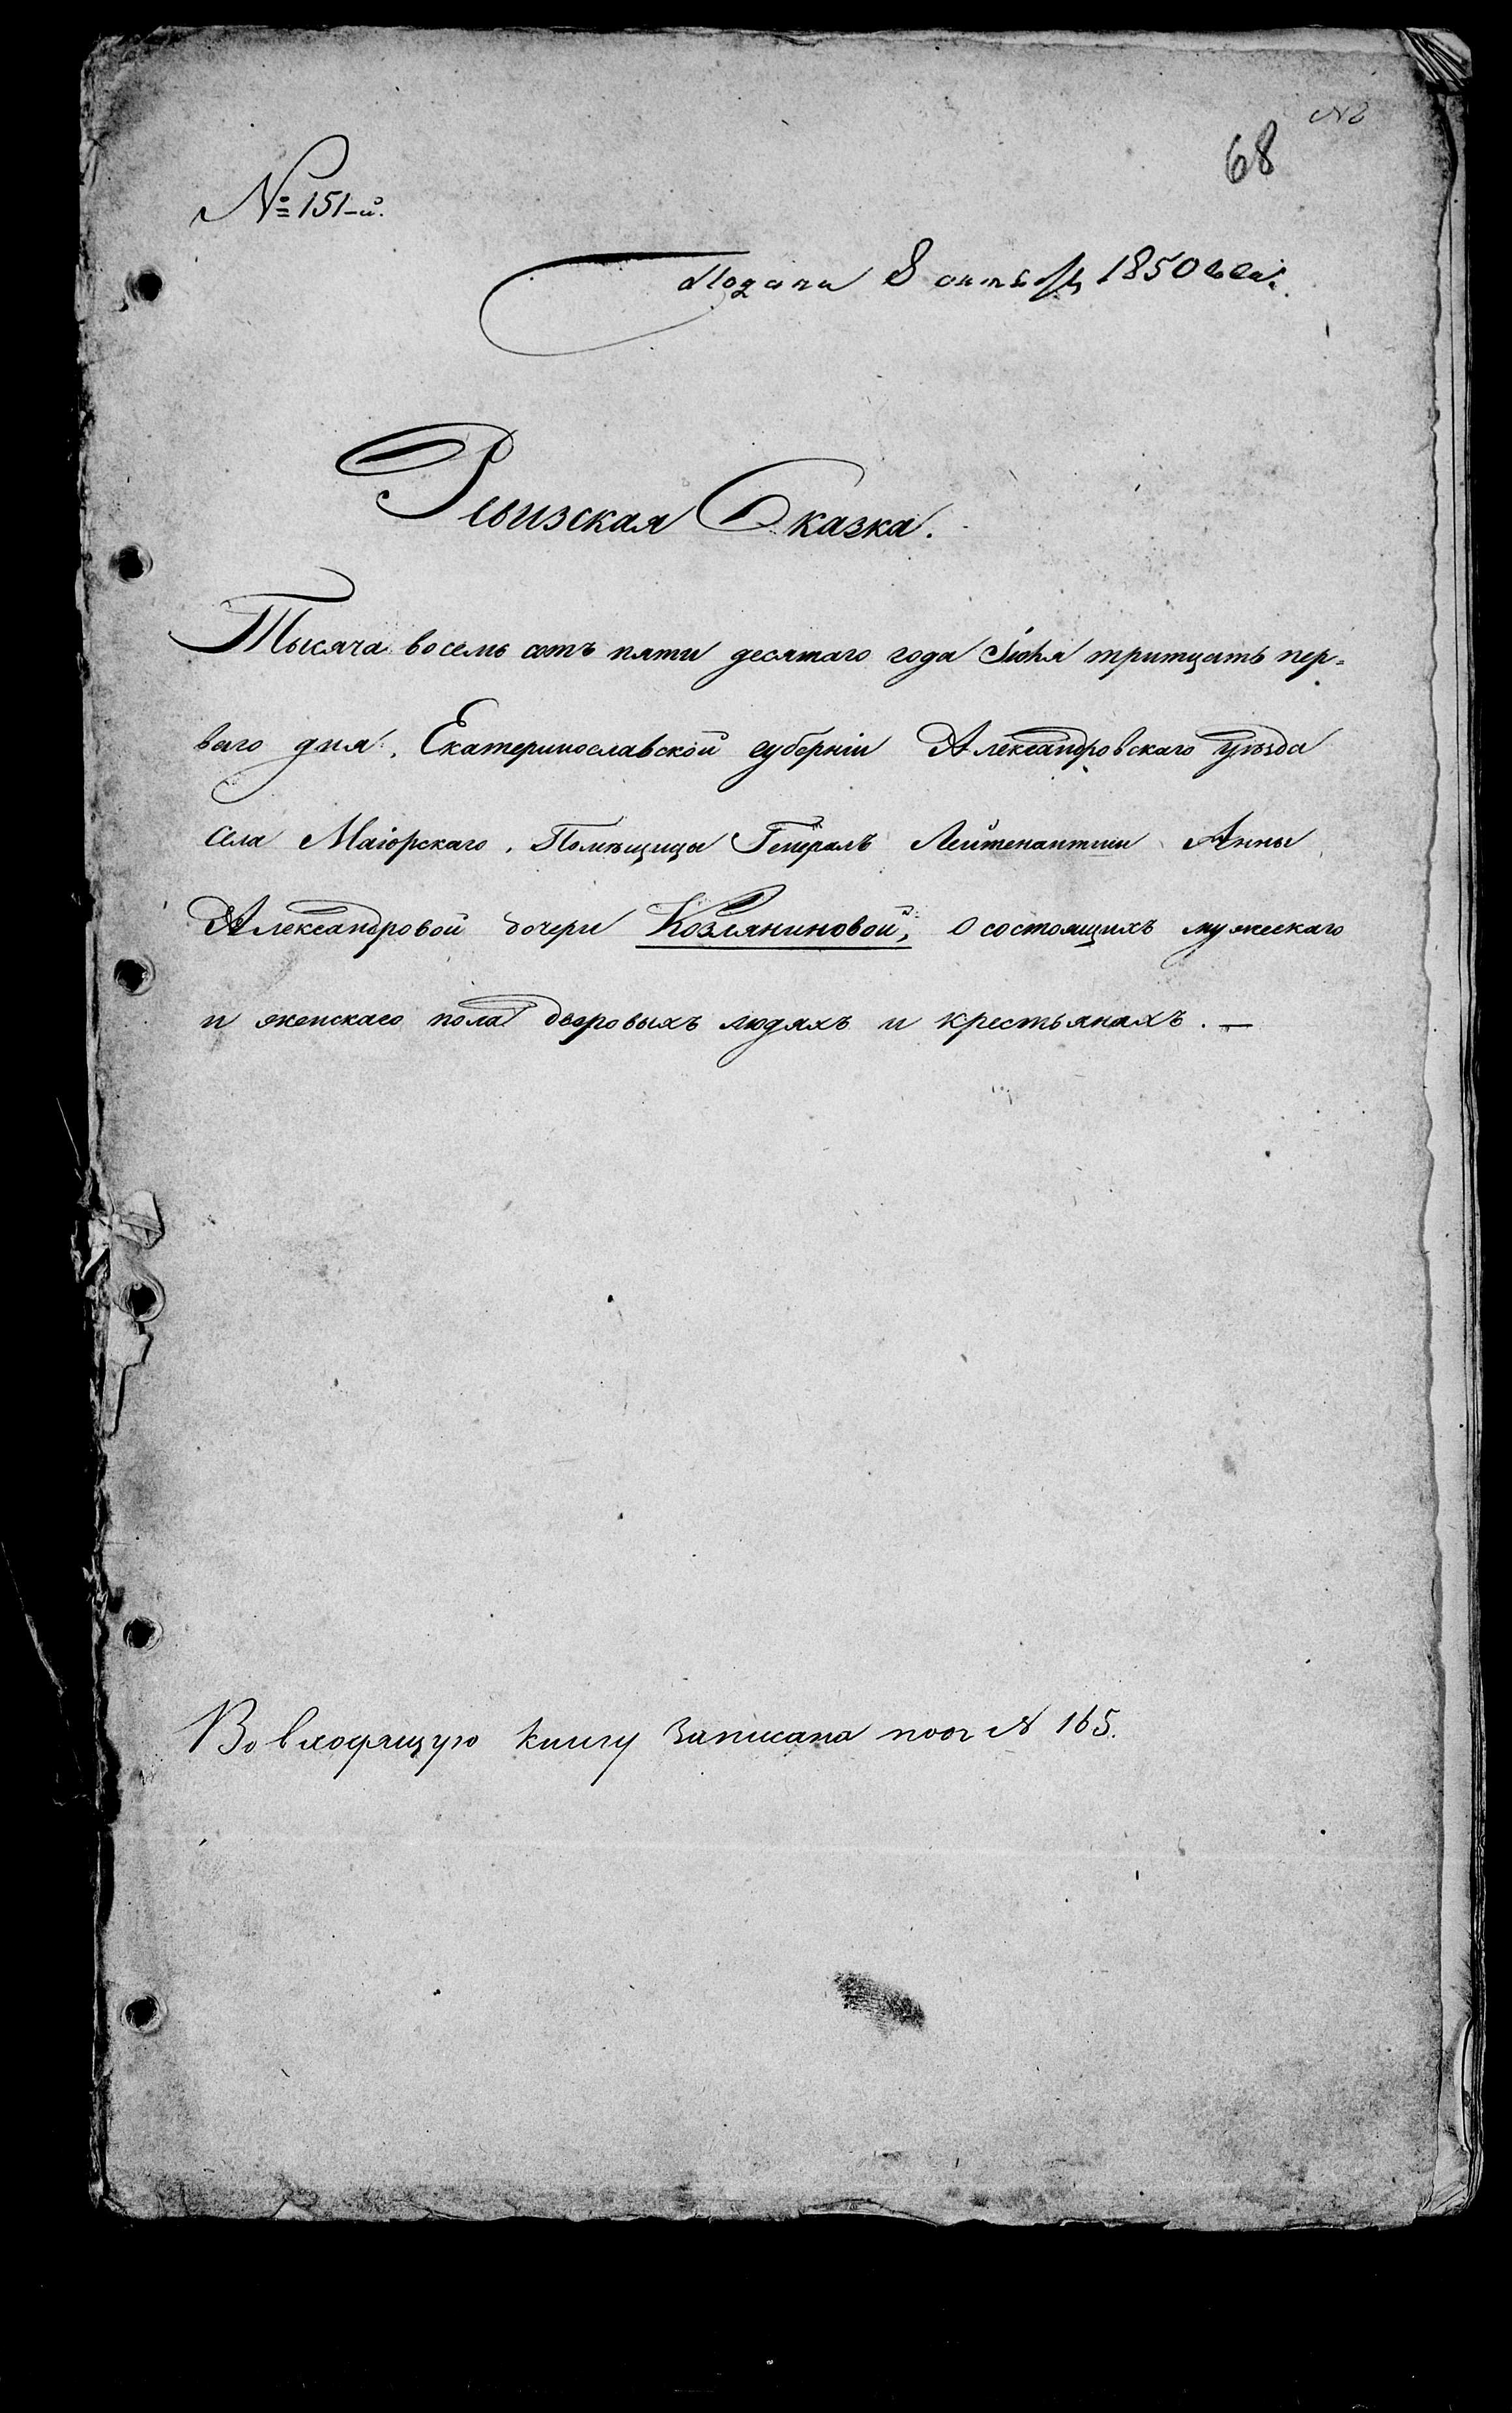 68
№ 151-й.
Подана 8 октября 1850 года.
Ревизская Сказка.
Тысяча восемь сотъ пяти десятаго года Іюня тритцать пер=
ваго дня. Екатеринославской губерніи Александровскаго уѣзда
села Маіорскаго. Помѣщицы Генералъ Лейтенантши Анны
Александровой дочери Козляниновой, О состоящихъ мужескаго
и женскаго пола дворовыхъ людяхъ и крестьянахъ. —
Во входящую книгу записана подъ № 165.